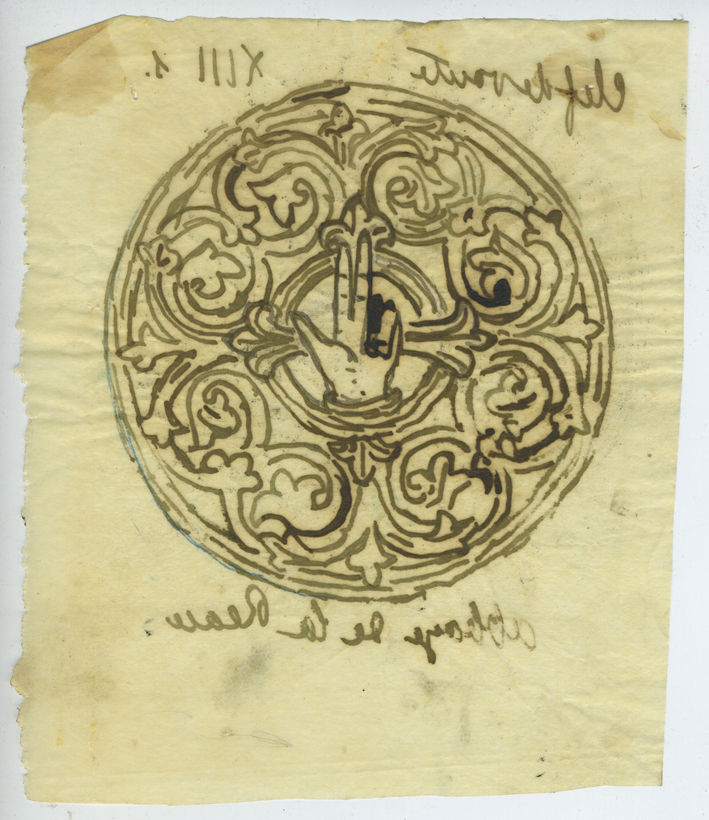 Clef de voute XIII s.
abbaye de la Reau